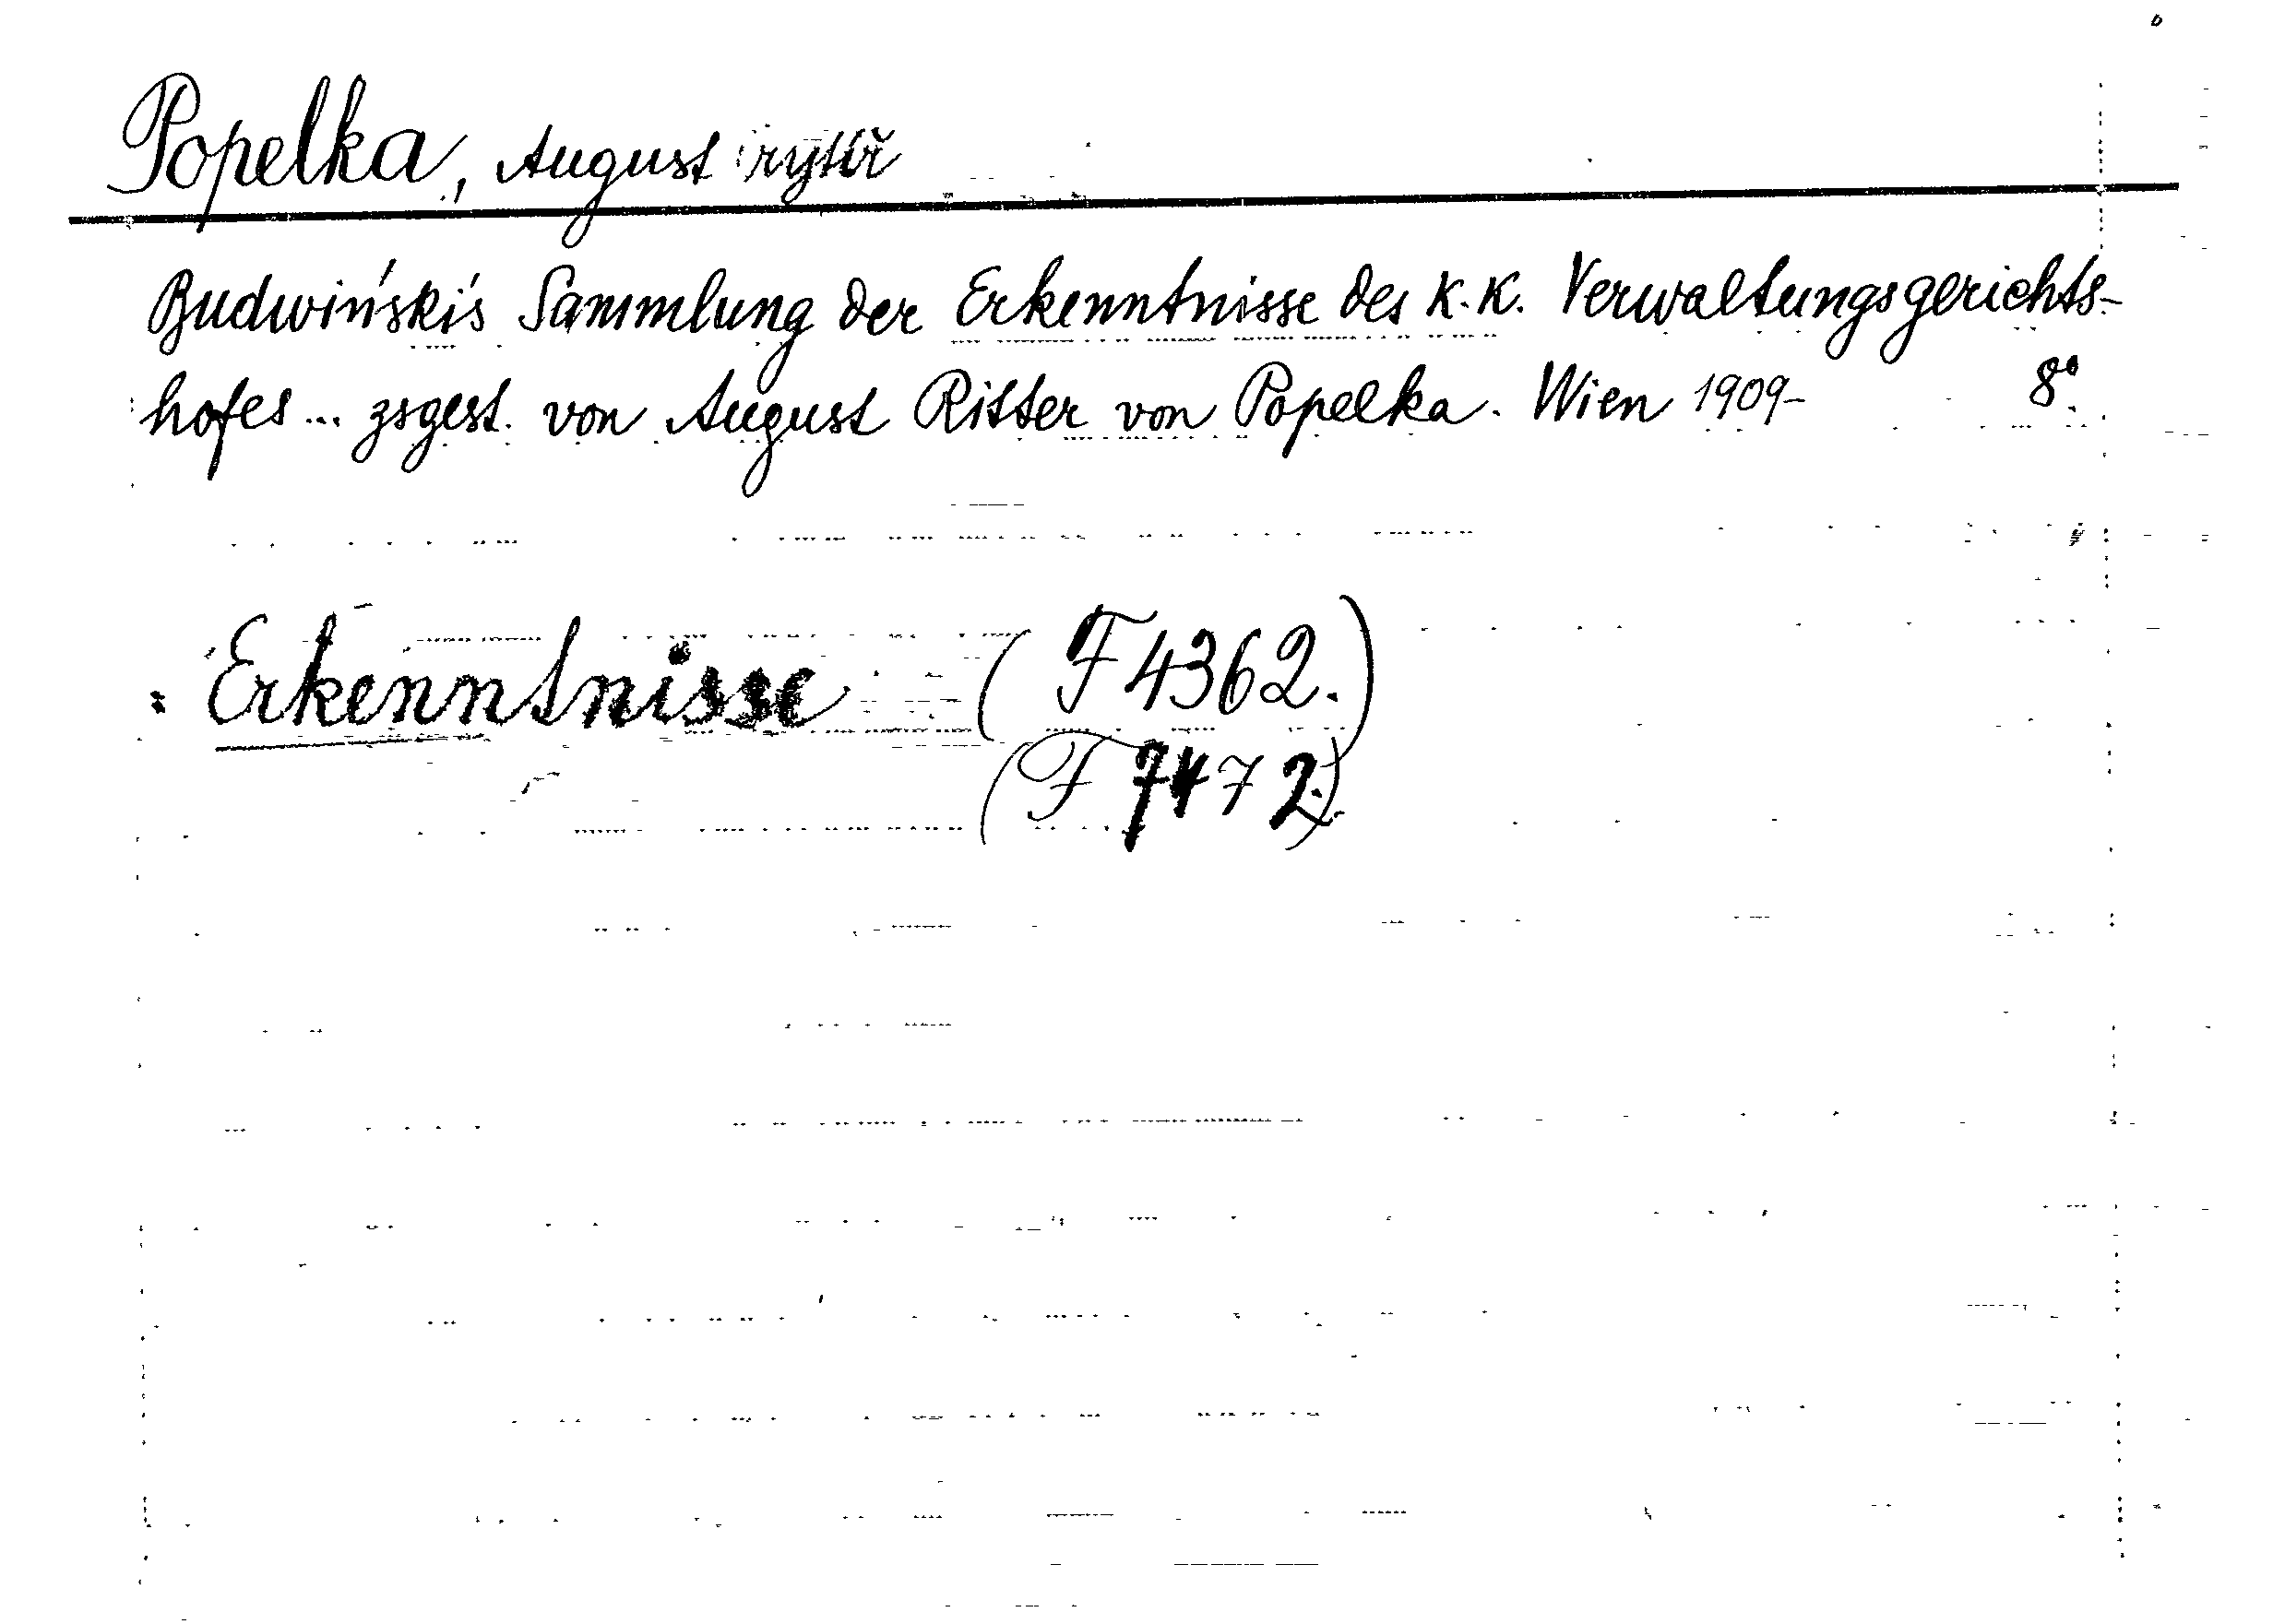 Popelka, August rytíř
Budwiński's Sammlung der Erkenntnisse des K. K. Verwaltungsgerichts-
hofes ... zsgest. von August Ritter von Popelka. Wien 1909- 8°.
Erkenntnisse (F 4362.)
(F 7472.)